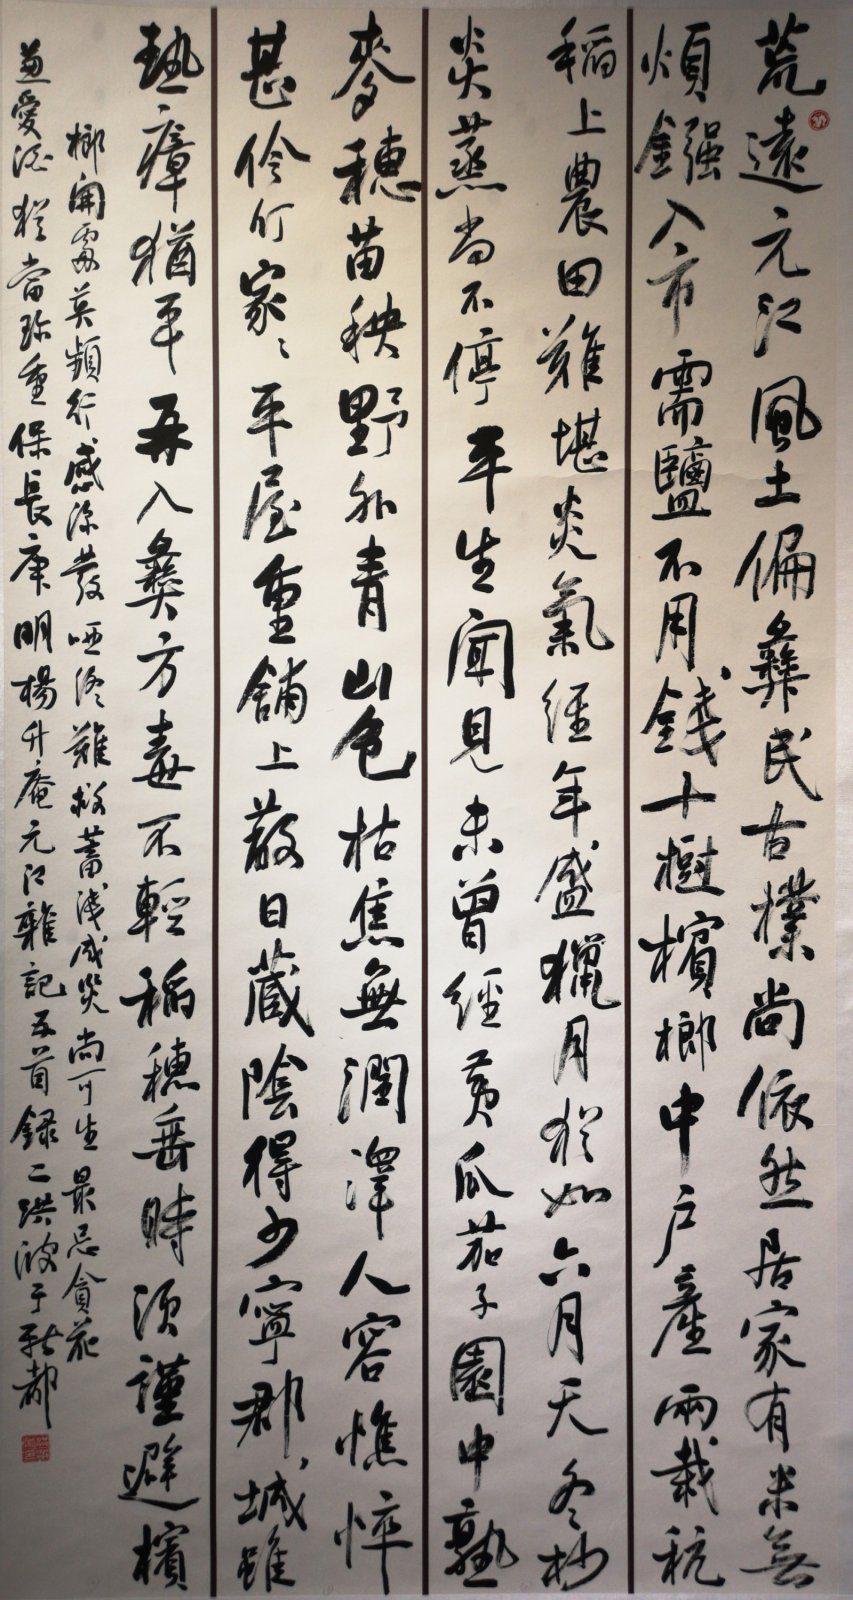 荒遠元江風土偏彝民古樸尚依然居家有米無
煩鏹入市需鹽不用錢十樹檳榔中戶產兩栽秔
稻上農田難堪炎氣經年盛獵月猶如六月天冬杪
炎蒸尚不停平生聞見未曾經黃瓜茄子園中熟
麥穗苗秧野外青山色枯焦無潤澤人容憔悴
甚伶仃家〻平屋重鋪上蔽日藏陰得少寧郡城雖
熱瘴猶平再入彝方毒不輕稻穗垂時須謹避檳
榔開處莫頻行感深發啞終難救蓄淺成災尚可生最忌貪花
兼愛酒猶當珍重保長庚明楊升庵元江雜記五首錄二洪波于新都